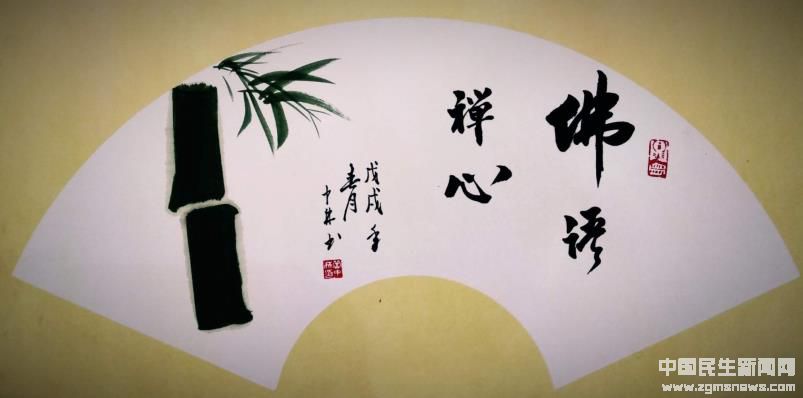 佛语
禅心
戊戌年
春月
中国民生新闻网
www.zgmsnews.com